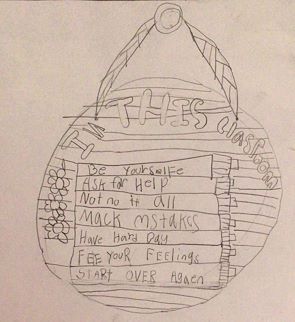 IN THIS classroom
Be Yourselfe
Ask for Help
Not no it all
Mack mstakes
Have Hard Day
FEE YouR FEELings
START OVER Agen